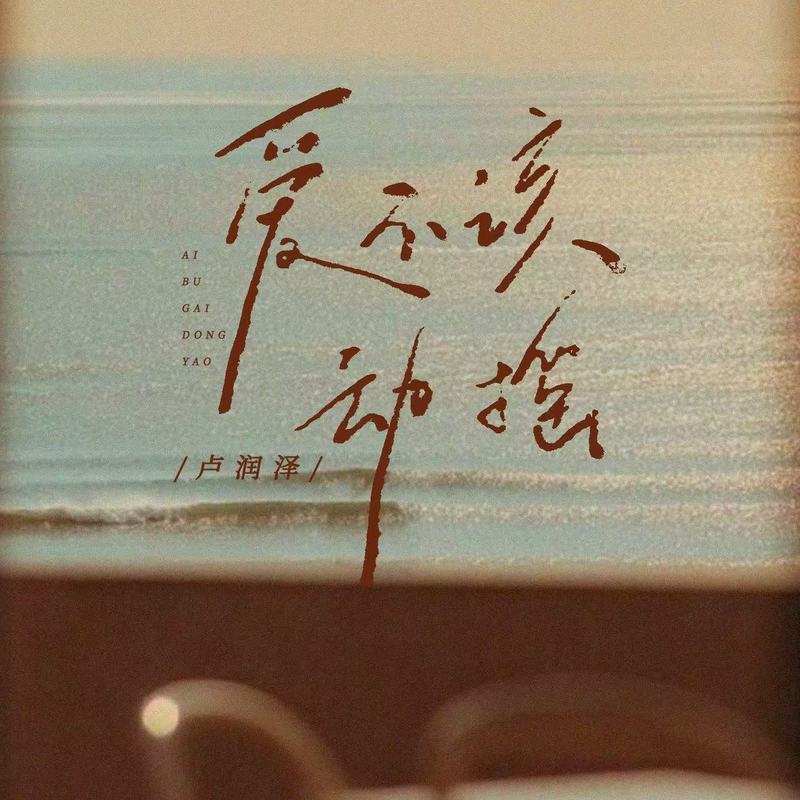 爱不该
动摇
AI
BU
GAI
DONG
YAO
/卢润泽/